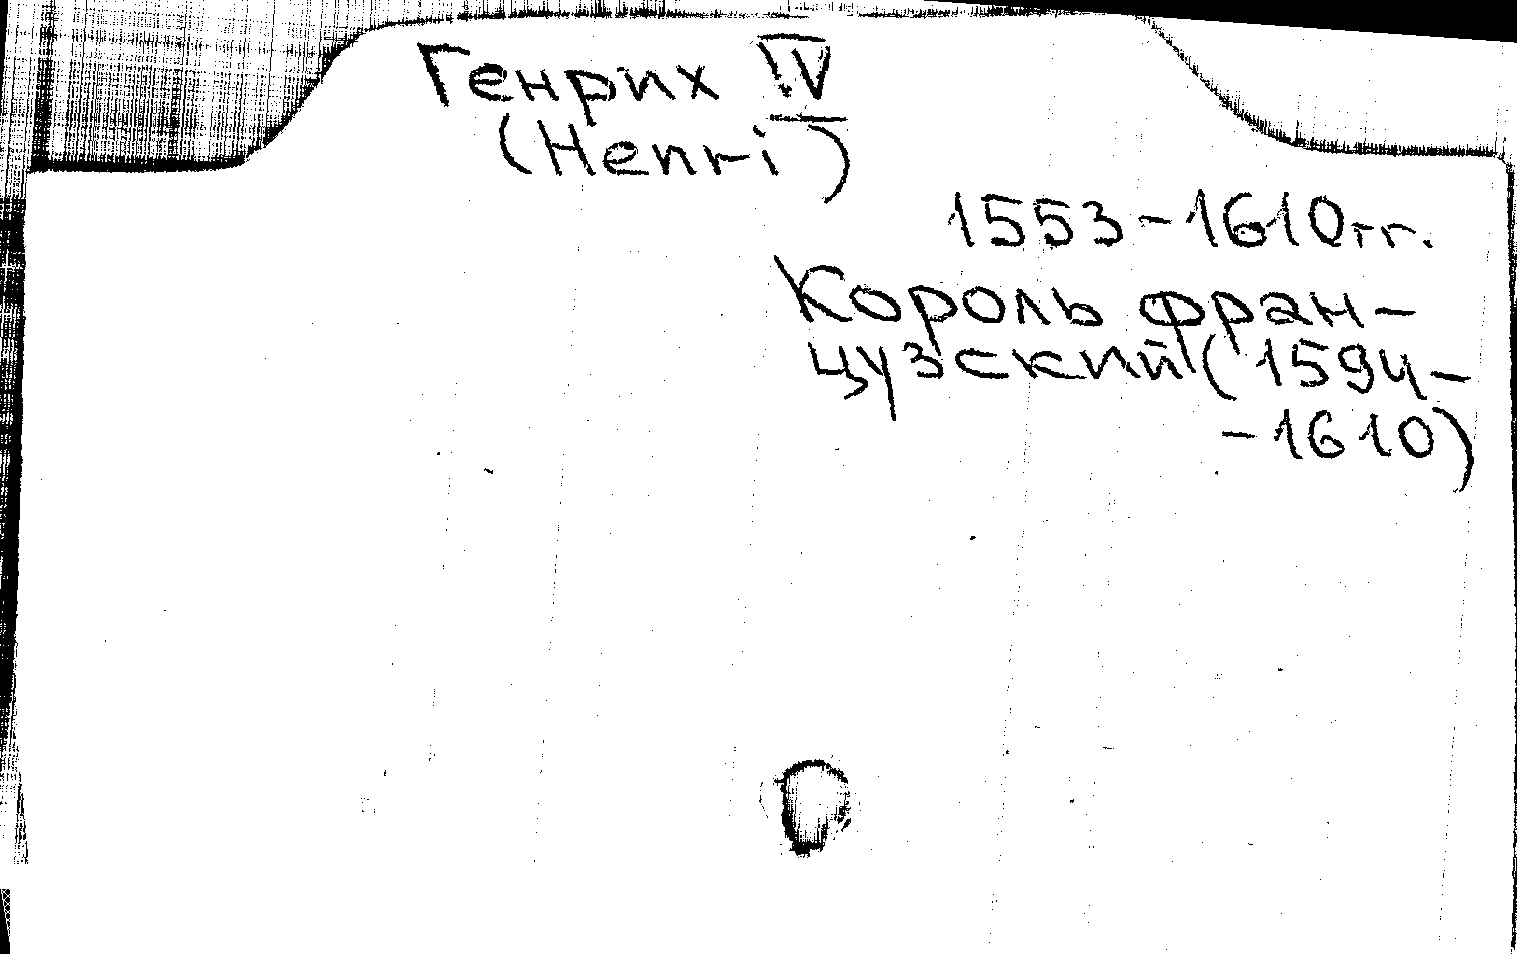 Генрих IV
(Henri)
1553-1610гг.
Король фран-
цузский (1594-
-1610)